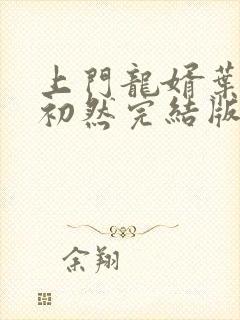 上門龍婿葉
初然完結版
余翔